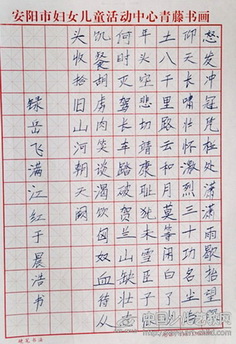 安阳市妇女儿童活动中心青藤书画
怒发冲冠凭栏处潇潇雨歇抬望眼
仰天长啸壮怀激烈三十功名尘与
土八千里路云和月莫等闲白了少
年头空悲切靖康耻犹未雪臣子恨
何时灭驾长车踏破贺兰山缺壮志
饥餐胡虏肉笑谈渴饮匈奴血待从
头收拾旧山河朝天阙
録岳飞满江红于晨浩书